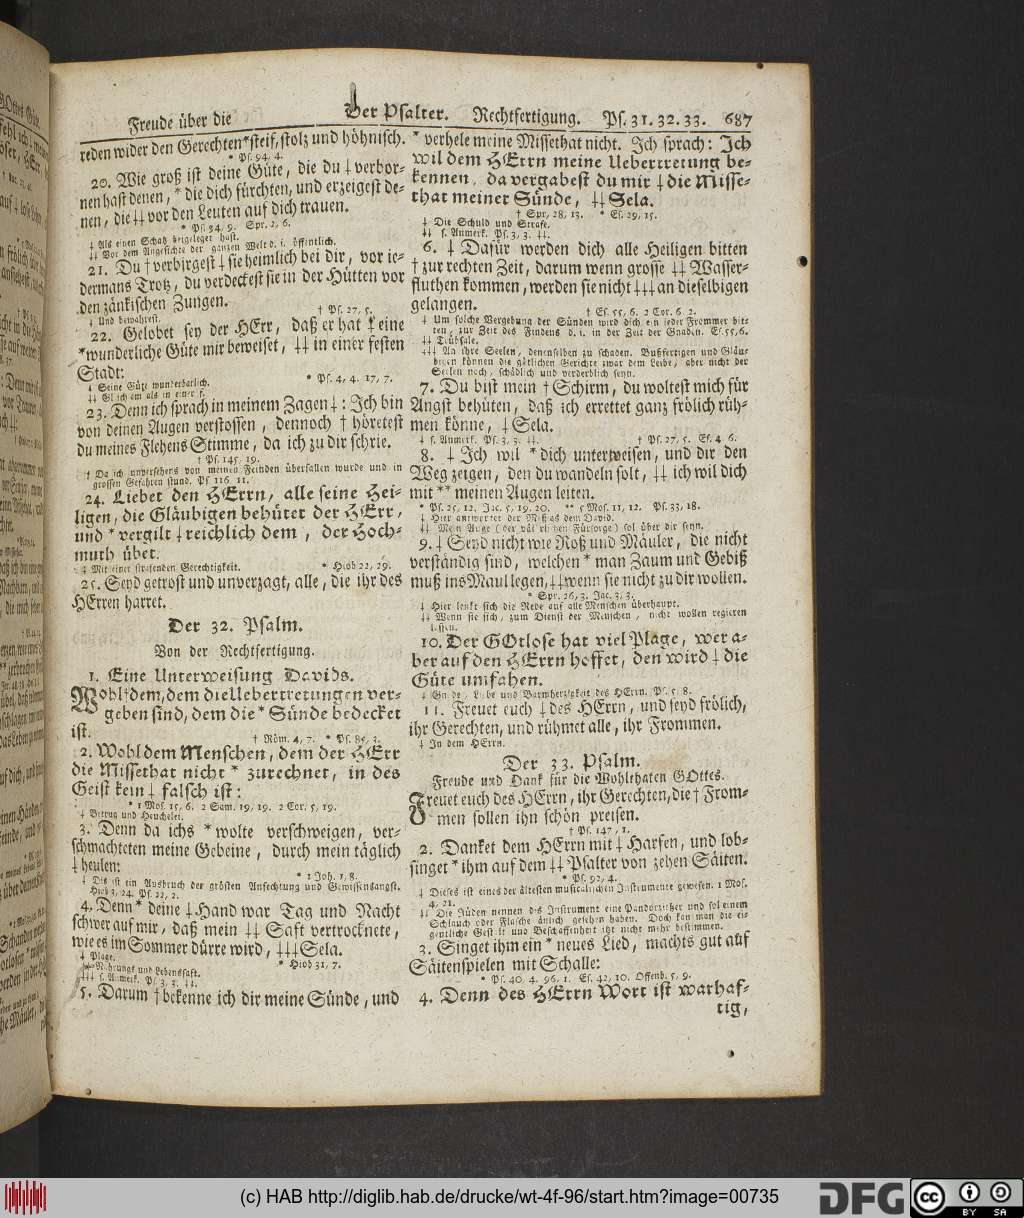 Freude über die Der Psalter. Rechtfertigung. Ps. 31. 32. 33. 687
reden wider den Gerechten * steif, stolz und höhnisch.
* Ps. 94, 4.
20. Wie groß ist deine Güte, die du ‡ verbor-
nen hast denen, * die dich fürchten, und erzeigest de-
nen, die ‡‡ vor den Leuten auf dich trauen.
* Ps. 34, 9. Spr. 2, 6.
‡ Als einen Schatz beigeleget hast.
‡‡ Vor dem Angesichte der ganzen Welt d. i. öffentlich.
21. Du † verbirgest ‡ sie heimlich bei dir, vor ie-
dermans Trotz, du verdeckest sie in der Hütten vor
den zänkischen Zungen.
† Ps. 27, 5.
‡ Und bewahrest.
22. Gelobet sey der HErr, daß er hat ‡ eine
* wunderliche Güte mir beweiset, ‡‡ in einer festen
Stadt:
* Ps. 4, 4. 17, 7.
‡ Seine Güte wunderbarlich.
‡‡ Gleich am als in einer f.
23. Denn ich sprach in meinem Zagen ‡: Ich bin
von deinen Augen verstossen, dennoch † höretest
du meines Flehens Stimme, da ich zu dir schrie.
† Ps. 145, 19.
‡ Da ich unversehens von meinen Feinden überfallen wurde und in
grossen Gefahren stund. Ps. 116, 11.
24. Liebet den HErrn, alle seine Hei-
ligen, die Gläubigen behütet der HErr,
und * vergilt ‡ reichlich dem, der Hoch-
muth übet.
* Hiob 22, 29.
‡ Mit einer strafenden Gerechtigkeit.
25. Seyd getrost und unverzagt, alle, die ihr des
HErren harret.
Der 32. Psalm.
Von der Rechtfertigung.
1. Eine Unterweisung Davids.
Wohl † dem, dem die Uebertretungen ver-
geben sind, dem die * Sünde bedecket
ist.
† Röm. 4, 7. * Ps. 85, 3.
2. Wohl dem Menschen, dem der HErr
die Missethat nicht * zurechnet, in des
Geist kein ‡ falsch ist:
* 1 Mos. 15, 6. 2 Sam. 19, 19. 2 Cor. 5, 19.
‡ Betrug und Heuchelei.
3. Denn da ichs * wolte verschweigen, ver-
schmachteten meine Gebeine, durch mein täglich
‡ heulen:
* 1 Joh. 1, 8.
‡ Dis ist ein Ausbruch der grösten Anfechtung und Gewissensangst.
Hiob 3, 24. Ps. 22, 2.
4. Denn * deine ‡ Hand war Tag und Nacht
schwer auf mir, daß mein ‡‡ Saft vertrocknete,
wie es im Sommer dürre wird, ‡‡‡ Sela.
* Hiob 31, 7.
‡ Plage.
‡‡ Nahrungs und Lebenssaft.
‡‡‡ s. Anmerk. Ps. 3, 3. ‡‡.
5. Darum † bekenne ich dir meine Sünde, und
* verhele meine Missethat nicht. Ich sprach: Ich
wil dem HErrn meine Uebertretung be-
kennen, da vergabest du mir ‡ die Misse-
that meiner Sünde, ‡‡ Sela.
† Spr, 28, 13. * Es. 29, 15.
‡ Die Schuld und Strafe.
‡‡ s. Anmerk. Ps. 3, 3. ‡‡.
6. ‡ Dafür werden dich alle Heiligen bitten
† zur rechten Zeit, darum wenn grosse ‡‡ Wasser-
fluthen kommen, werden sie nicht ‡‡‡ an dieselbigen
gelangen.
† Es. 55, 6. 2 Cor. 6, 2.
‡ Um solche Vergebung der Sünden wird dich ein ieder Frommer bit-
ten, zur Zeit des Findens d. i. in der Zeit der Gnaden. Es. 55, 6.
‡‡ Trübsale.
‡‡‡ An ihre Seelen, denenselben zu schaden. Bußfertigen und Gläu-
bigen können die götlichen Gerichte zwar dem Leibe, aber nicht der
Seelen nach, schädlich und verderblich seyn.
7. Du bist mein † Schirm, du woltest mich für
Angst behüten, daß ich errettet ganz frölich rüh-
men könne, ‡ Sela.
‡ s. Anmerk. Ps. 3, 3. ‡‡. † Ps. 27, 5. Es. 4, 6.
8. ‡ Ich wil * dich unterweisen, und dir den
Weg zeigen, den du wandeln solt, ‡‡ ich wil dich
mit ** meinen Augen leiten.
* Ps. 25, 12. Jac. 5, 19. 20. ** 5 Mos. 11, 12. Ps. 33, 18.
‡ Hier antwortet der Messias dem David.
‡‡ Mein Auge (der väterlichen Fürsorge) sol über dir seyn.
9. ‡ Seyd nicht wie Roß und Mäuler, die nicht
verständig sind, welchen * man Zaum und Gebiß
muß ins Maul legen, ‡‡ wenn sie nicht zu dir wollen.
* Spr. 26, 3. Jac. 3, 3.
‡ Hier lenkt sich die Rede auf alle Menschen überhaupt.
‡‡ Wenn sie sich, zum Dienst der Menschen, nicht wollen regieren
lassen.
10. Der GOtlose hat viel Plage, wer a-
ber auf den HErrn hoffet, den wird ‡ die
Güte umfahen.
‡ Gnade, Liebe und Barmherzigkeit des HErrn. Ps. 5, 8.
11. Freuet euch ‡ des HErrn, und seyd frölich,
ihr Gerechten, und rühmet alle, ihr Frommen.
‡ In dem HErrn.
Der 33. Psalm.
Freude und Dank für die Wohlthaten GOttes.
Freuet euch des HErrn, ihr Gerechten, die † From-
men sollen ihn schön preisen.
† Ps. 147, 1.
2. Danket dem HErrn mit ‡ Harfen, und lob-
singet * ihm auf dem ‡‡ Psalter von zehen Säiten.
* Ps. 92, 4.
‡ Dieses ist eines der ältesten musicalischen Instrumente gewesen. 1 Mos.
4, 21.
‡‡ Die Jüden nennen dis Instrument eine Pandorzither und sol einem
Schlauch oder Flasche änlich gesehen haben. Doch kan man die ei-
gentliche Gestalt und Beschaffenheit itzt nicht mehr bestimmen.
3. Singet ihm ein * neues Lied, machts gut auf
Säitenspielen mit Schalle:
* Ps. 40, 4. 96, 1. Es. 42, 10. Offenb. 5, 9.
4. Denn des HErrn Wort ist warhaf-
tig,
(c) HAB http://diglib.hab.de/drucke/wt-4f-96/start.htm?image=00735
DFG
cc BY SA